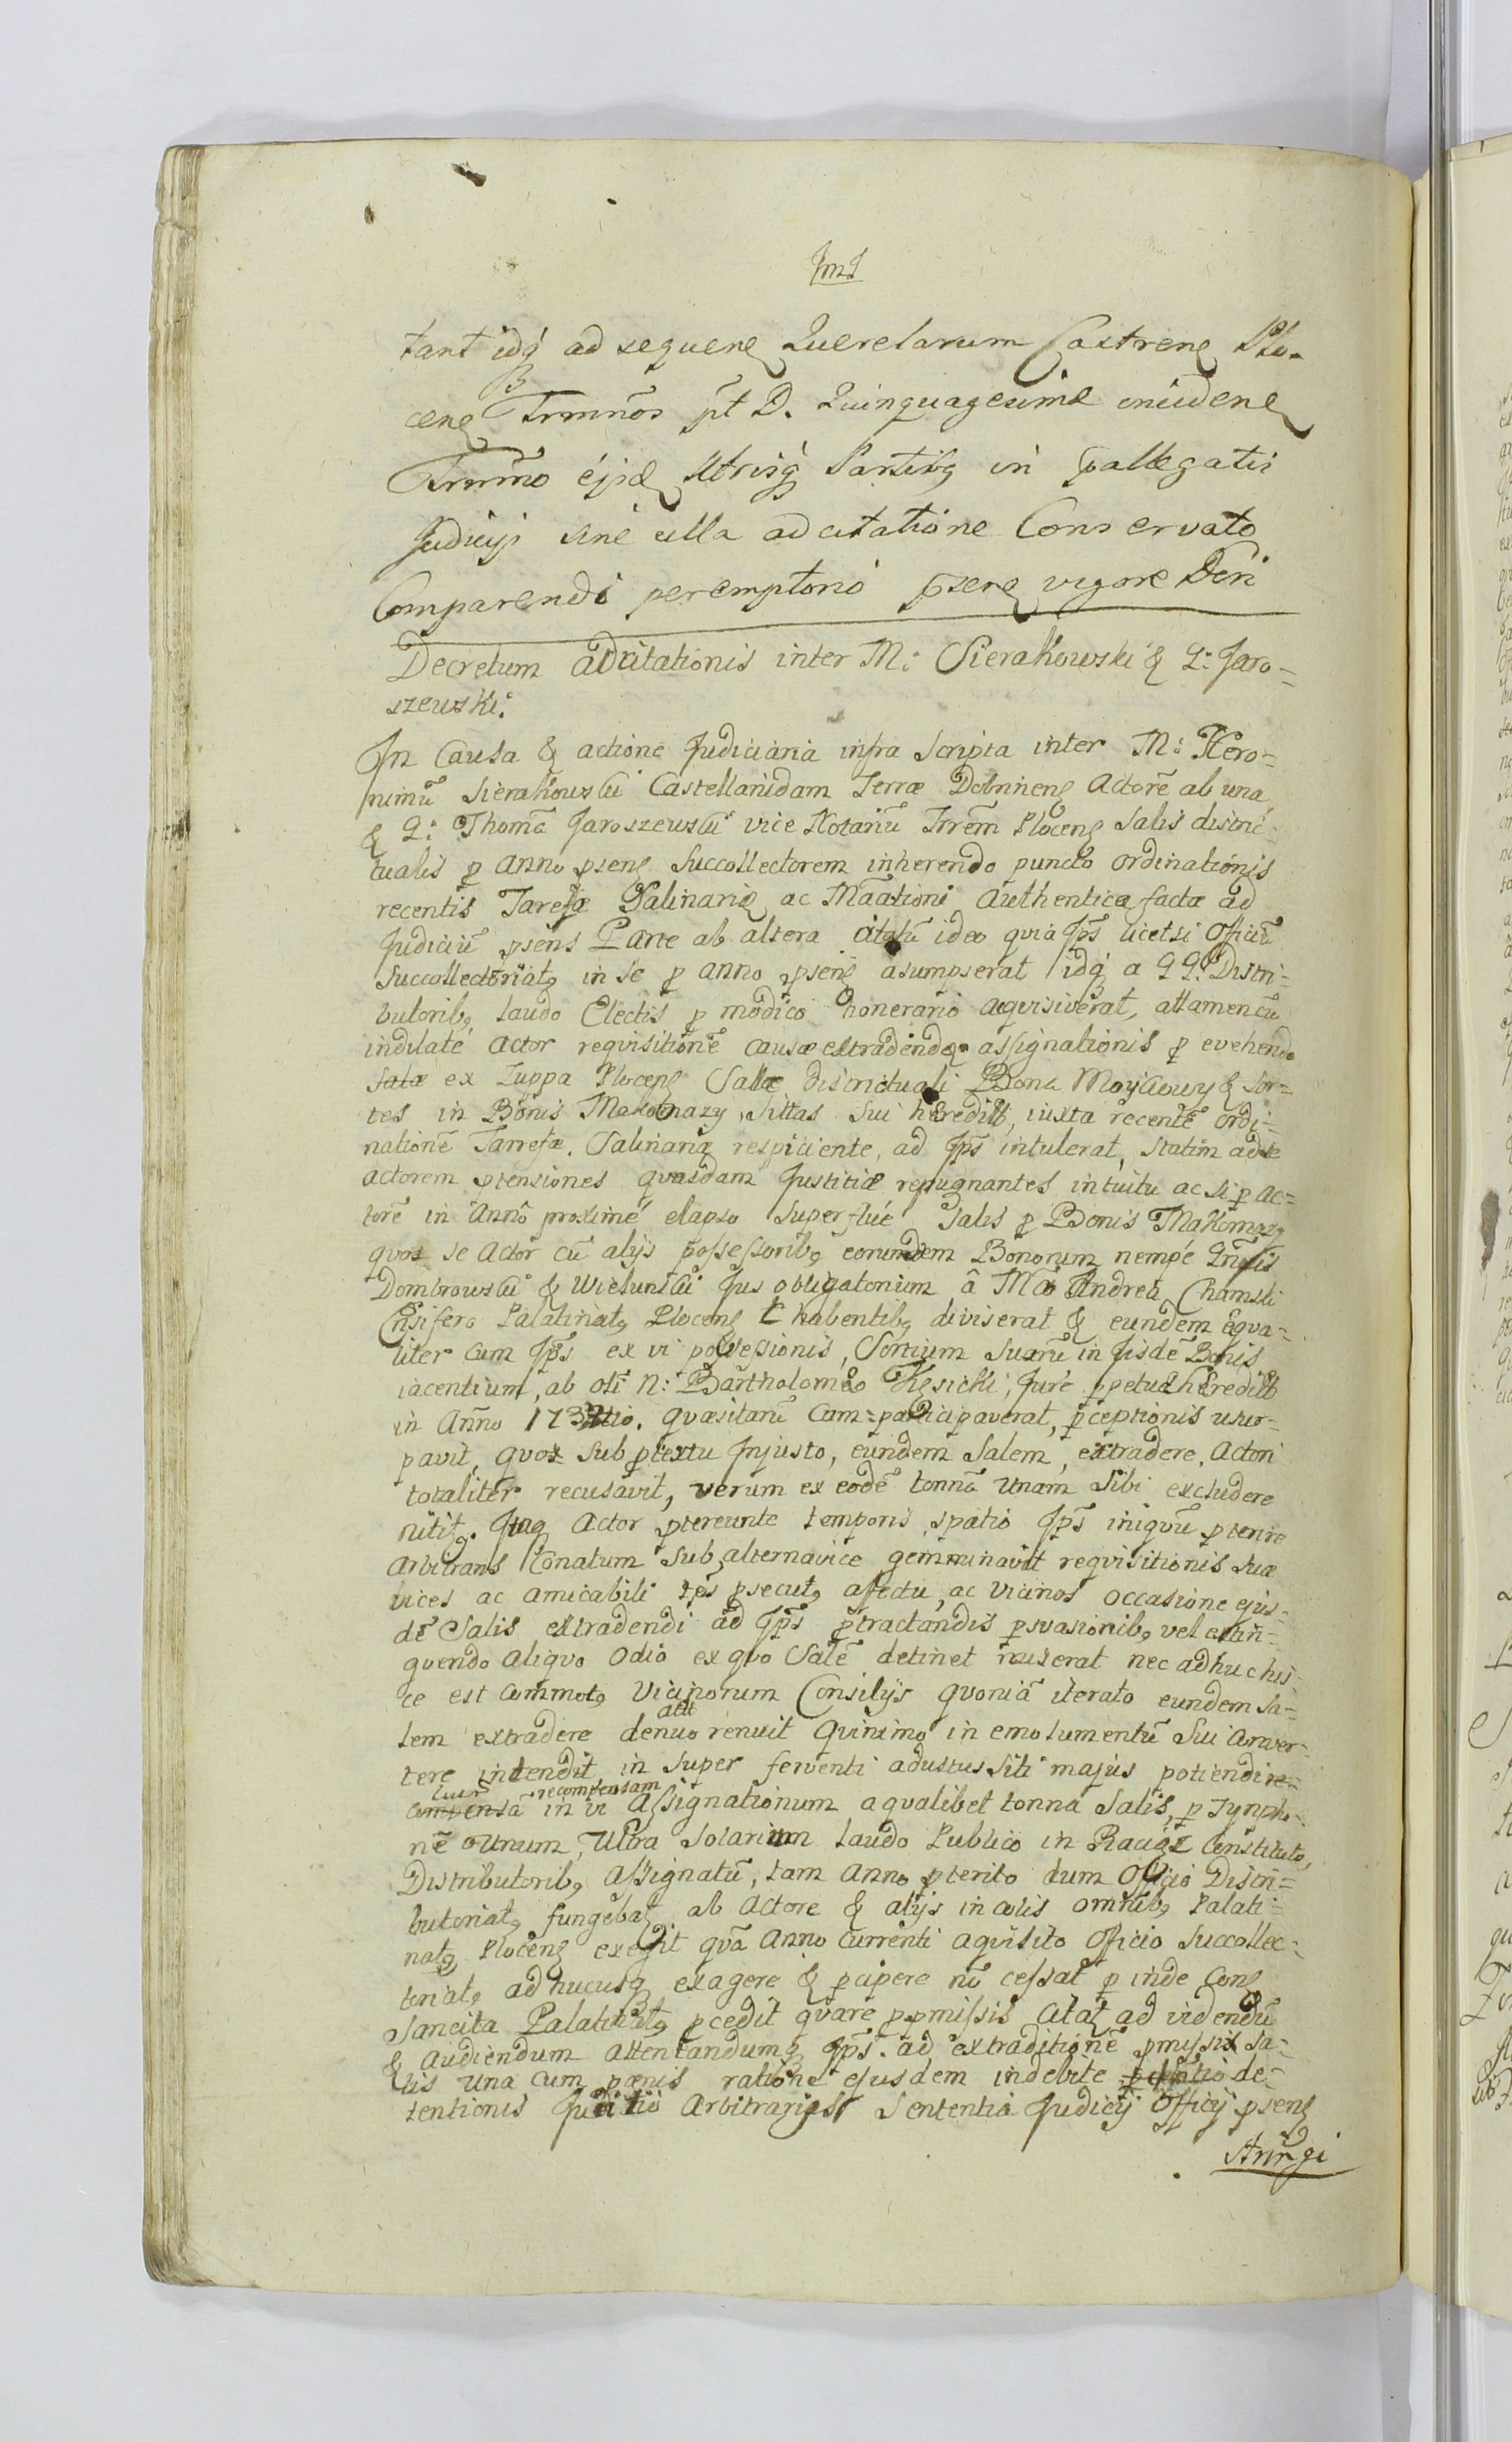 tant idq́ ad sequene Querelarum Castrene Plo-
cene Trmños pt D. Quinquagesimæ incidene
Trmño ejsd Utrisq́ Partibq in pallegatis
Judicij sine ulla adcitatione Conservato
Comparendi peremptorio psene vigore Dcri
Decretum adcitationis inter M: Sierakowski & G: Jaro=
szewski:
In Causa & actione Judiciaria infra Scripta inter M: Hero=
nimū Sierakowski Castellanidam Terræ Dobrinens Actorē ab una
& G: Thomā Jaroszewski vice Notariū Trrēm Plocens Salis distric-
tualis p Anno psens Succollectorem inherendo puncto ordinationis
recentis Tareffæ Salinariæ ac authentice factæ ad
Judiciū psens Parte ab altera citatū ideo quia Jps licetsi Officiū
Succollectoriatq in se p anno psens asumpserat idq́ a GG: Distri=
butoribq Laudo Electis p modico honorario aqvisiverat, attamen cū
indilaté Actor reqvisitionē causæ extradendæ assignationis p evehendo
Sale ex Zuppa Plocens Sale Districtuali Bona & Sor=
tes in Bonis Makomazy Sittas Sui heredit, iuxta recentē ordi=
nationē Tarrefæ Salinariæ respiciente, ad Jps intulerat, Statim adse
Actorem ptensiones qvasdam Justitiæ repugnantes intuitu ac si p Ac=
torē in Anno proximé elapso Superflué Salis p Bonis Makomazy
qvos se Actor cū alijs possessoribq eorundem Bonorum nempé
Dombrowski & Wielunski Jus obligatorium â Mco Andrea Chamski
Ensifero Palatinatq Plocens habentibq diviserat & eundem æqva=
liter cum Jps ex vi possessionis, Sortium Suarū in Jisdē Bonis
iacentium, ab oli N: Bartholomeo Kęsicki, Jure ppetuæ heredit
in Anño qvæsitarū Cum=participaverat, pceptionis usur=
pavit, qvos sub ptextu Injusto, eundem Salem, extradere, Actori
totaliter recusavit, verum ex eodē tonnā Unam Sibi excludere
nititq. Actor ptereunte temporis spatio Jps iniqvū pterire
Arbitrans Conatum Sub alternavice gemminavit reqvisitionis Suæ
vices ac amicabili Jps psecutq affectu, ac Vicinos occasione ejus=
dē Salis extradendi ad Jps ptractandis psvasionibq vel extin=
guendo aliqvo Odio ex qvo Salē detinet miserat nec adhuc his=
ce est Commotq Vicinorum Consilijs qvoniā iterato eundem Sa=
lem extradere denuo renuit Qvinimo in emolumentū Sui
tere intendit in super ferventi adustus siti majus potiendi re=
recompensam
in vi Assignationum a qvalibet tonna Salis, p Tympho=
nē Unum, Ultra Solarium Laudo Publico in Raciąż Constituto,
Distributoribq Assignatū, tam Anno pterito dum Officio Distri=
butoriatq fungebat ab Actore & alijs incolis omnibq Palati=
natq Plocens exegit qvā Anno Currenti aqvisito Officio Succollec=
toriatq adhucusq exagere & pcipere nō cessat p inde Cons
Sancita Palatinatq pcedit qvare ppmissis citat ad videndū
& Audiendum Attentandumq Jps. ad extraditionē pmissi Sa=
lis una cum pœnis ratione ejusdem indebite de=
tentionis Juditio Arbitrarijs Sententia Judicij Officij psens
Strirgi